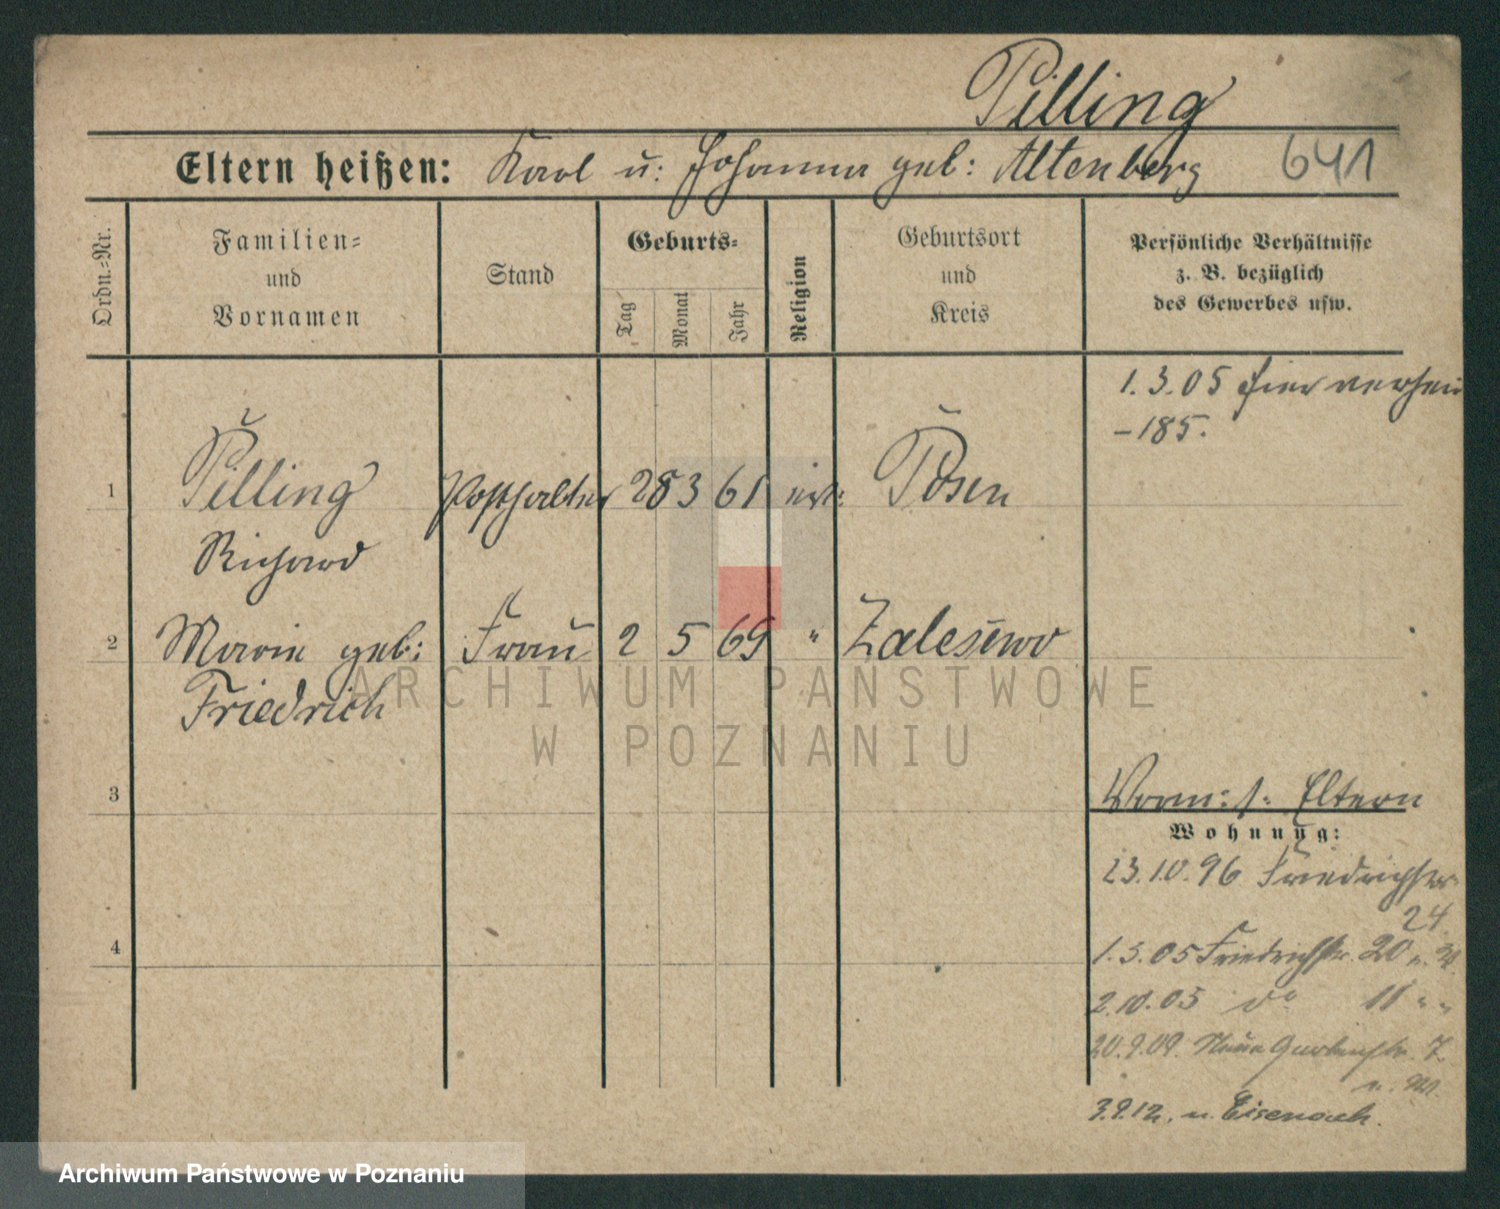 Pilling
Eltern heißen: Karl u: Johanna geb: Altenberg 641
Ordn.-Nr.
Familien=
und
Vornamen
Stand
Geburts=
Tag
Monat
Jahr
Religion
Geburtsort
und
Kreis
Persönliche Verhältnisse
z. B. bezüglich
des Gewerbes usw.
1.3.05 hier
-185.
1 Pilling Posthalter 28 3 61 Posen
Richard
2 Marie geb: Frau 2 5 69 " Zalesiewo
Friedrich
ARCHIWUM PAŃSTWOWE
W POZNANIU
3
Eltern
Wohnung:
23.10.96 Friedrichstr
24.
4
1.3.05 Friedrichstr. 20
2.10.05 do 11 " "
20.9.09. Neue Gartenstr. 7.
3.9.12. n. Eisenach.
Archiwum Państwowe w Poznaniu